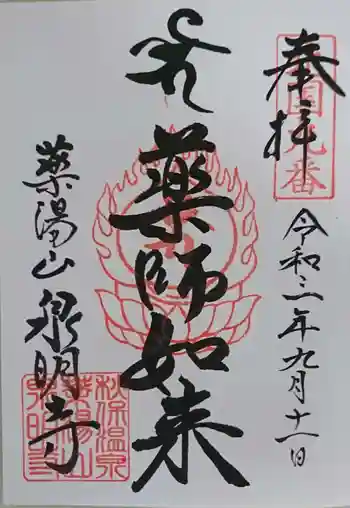 奉拝
令和二年九月十一日
薬師如来
薬湯山 泉明寺
秋保温泉
薬湯山
泉明寺